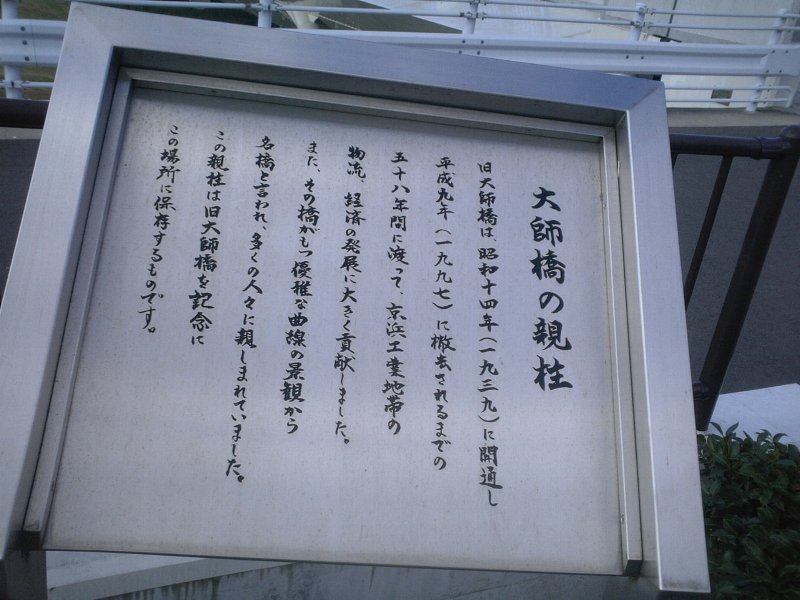 大師橋の親柱
旧大師橋は、昭和十四年(一九三九)に開通し
平成九年(一九九七)に撤去されるまでの
五十八年間に渡って、京浜工業地帯の
物流、経済の発展に大きく貢献しました。
また、その橋がもつ優雅な曲線の景観から
名橋と言われ、多くの人々に親しまれていました。
この親柱は旧大師橋を記念に
この場所に保存するものです。